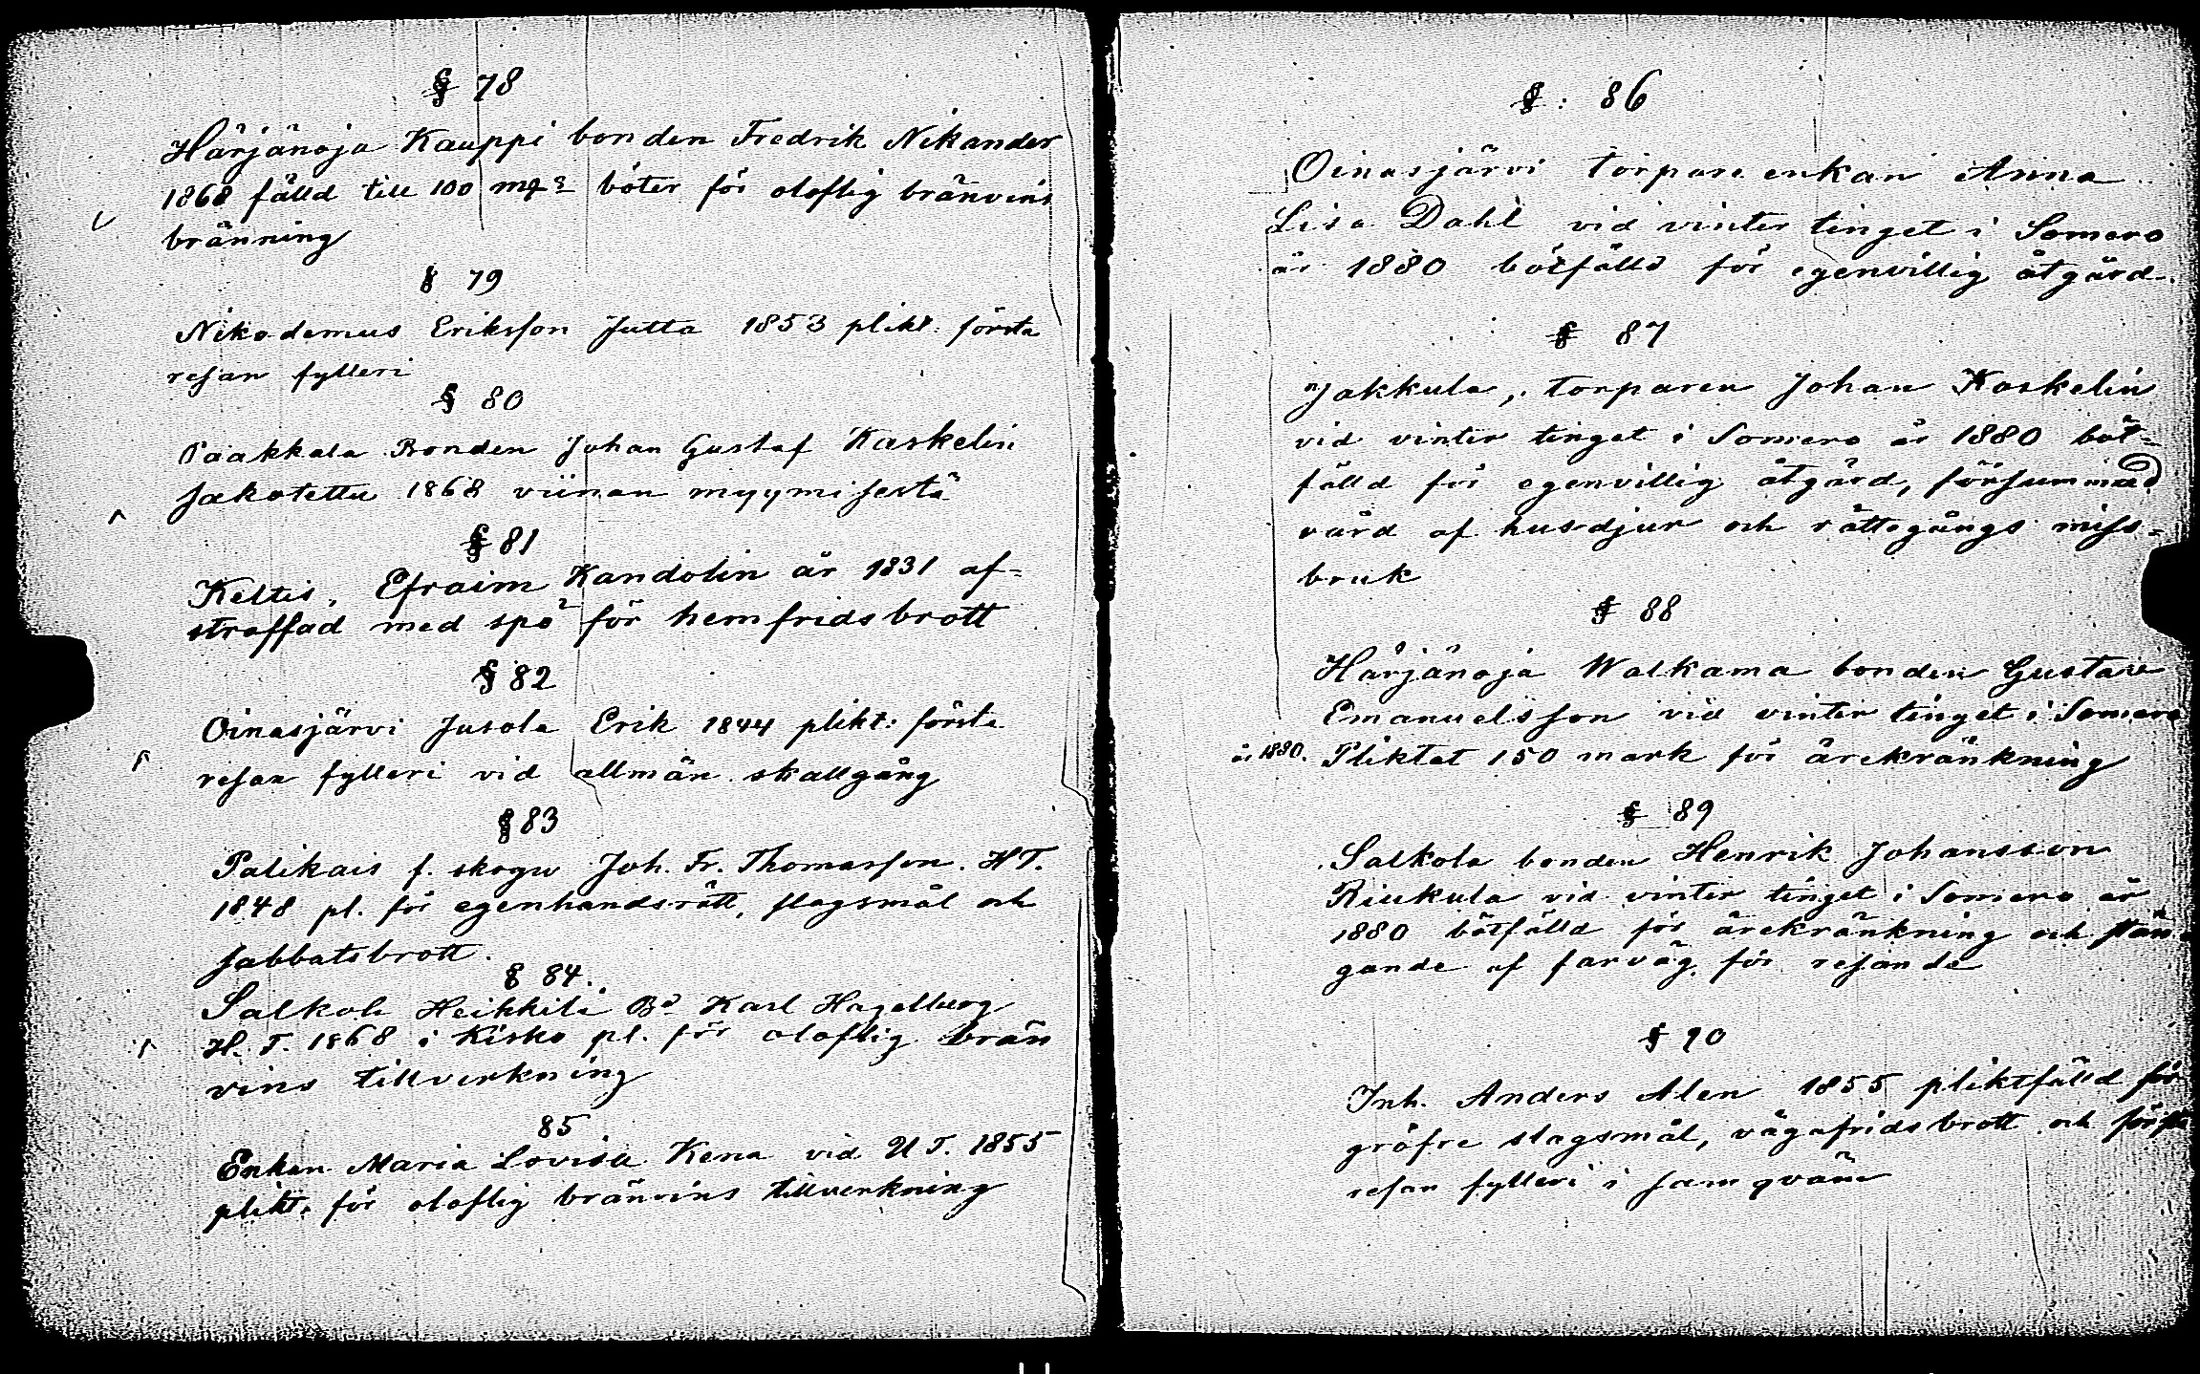 § 78
Härjänoja Kauppi bonden Fredrik Nikander
1868 fälld till 100 böter för oloflig bränvins
bränning
§ 79
Nikodemus Eriksson Jutta 1853 plikt. första
resan fylleri
§ 80
Paakkala Bonden Johan Gustaf Kaskelin
sakotettu 1868 viinan myymisestä
§ 81
Keltis, Efraim Kandolin år 1831 af-
straffad med spö för hemfridsbrott
§ 82
Oinasjärvi Jusola Erik 1844 plikt: första
resan fylleri vid allmän skallgång
§ 83
Palikais f. skogv Joh. Fr. Thomasson. HT.
1848 pl. för egenhandsrätt, slagsmål och
sabbatsbrott.
§ 84.
Salkola Heikkilä Bd Karl Hagelberg
H. T. 1868 i Kisko pl. för oloflig brän
vins tillverkning
85
Enkan Maria Lovisa Kena vid U T. 1855
plikt. för oloflig bränvins tillverkning
§: 86
Oinasjärvi torpare enkan Anna
Lisa Dahl vid vinter tinget i Somero
år 1880 bötfälld för egenvillig åtgärd.
§ 87
Jakkula, torparen Johan Koskelin
vid vinter tinget i Somero år 1880 böt-
fälld för egenvillig åtgärd, försummad
vård af husdjur och rättegångs miss-
bruk
§ 88
Härjänoja Walkama bonden Gustav
Emanuelsson vid vinter tinget i Somero
år 1880. Pliktat 150 mark för ärekränkning
§ 89
Salkola bonden Henrik Johansson
Riukula vid vinter tinget i Somero år
1880 bötfälld för ärekränkning och stän-
gande af farväg för resande
§ 90
Inh. Anders Alen 1855 pliktfälld för
gröfre slagsmål, vägafridsbrott och första
resan fylleri i samqväm